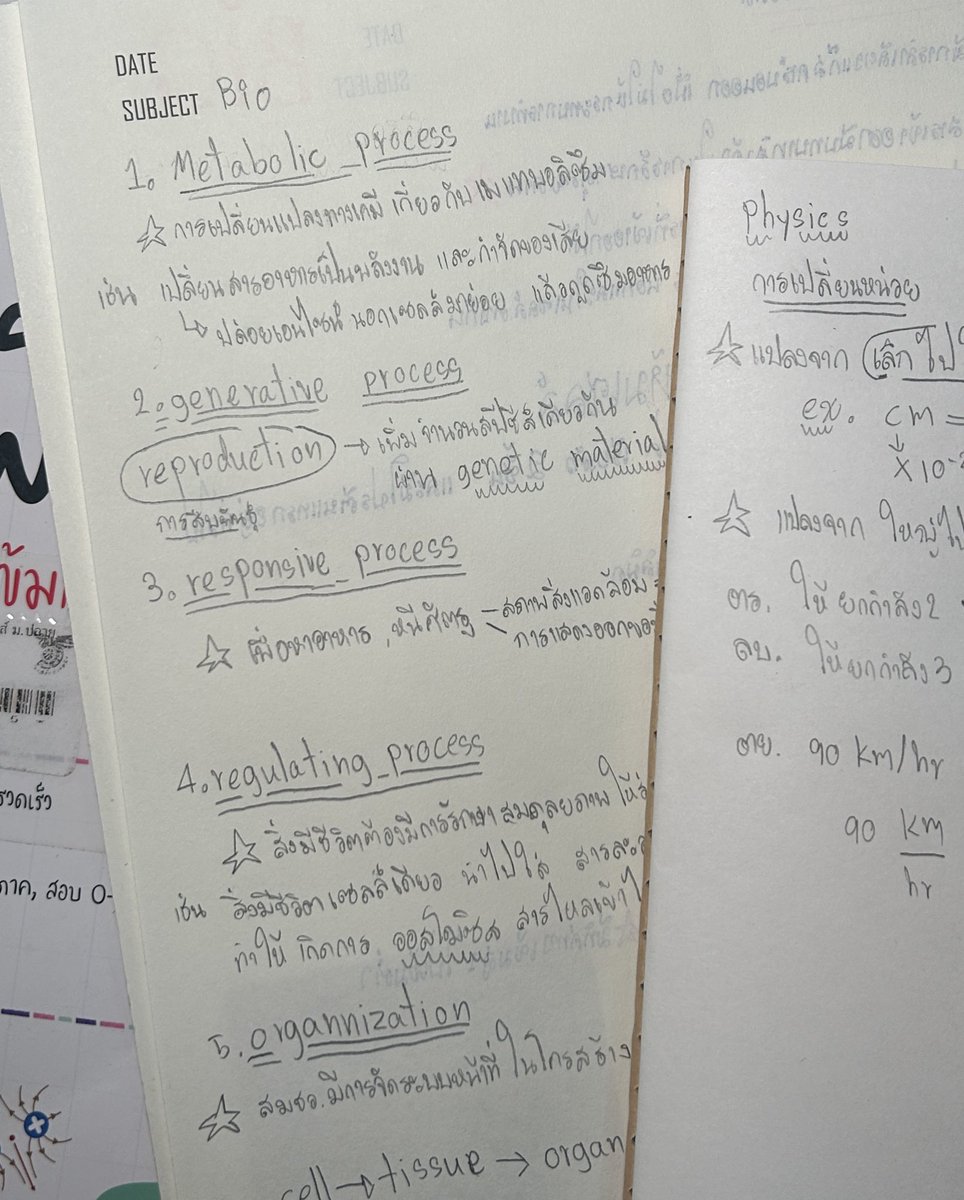 DATE
SUBJECT Bio
1. Metabolic process
☆ การเปลี่ยนแปลงทางเคมี เกี่ยวกับเมแทบอลิซึม
เช่น เปลี่ยนสารอาหารเป็นพลังงาน และกำจัดของเสีย
↳ ปล่อยเอนไซม์นอกเซลล์มาย่อย แล้วดูดซึมอาหาร
2. generative process
reproduction → เพิ่มจำนวนสปีชีส์เดียวกัน
ผ่าน genetic material
การสืบพันธุ์
3. responsive process
☆ เพื่อหาอาหาร, หนีศัตรู
สภาพสิ่งแวดล้อม
การแสดงออกของ
4. regulating process
☆ สิ่งมีชีวิตต้องมีการรักษาสมดุลยภาพ ให้
เช่น สิ่งมีชีวิตเซลล์เดียว นำไปใส่ สารละ
ทำให้ เกิดการ ออสโมซิส สารไหลเข้า
5. organnization
☆ สมชว. มีการจัดระบบหน้าที่ ในโครงสร้าง
cell → tissue → organ
Physics
การเปลี่ยนหน่วย
☆ แปลงจาก เล็กไป
ex. cm =
×10⁻²
☆ แปลงจาก ใหญ่ไป
ตร. ให้ยกกำลัง 2
ลบ. ให้ยกกำลัง 3
ตย. 90 km/hr
90 km
hr
ส์ ม.ปลาย
รวดเร็ว
ภาค, สอบ O-